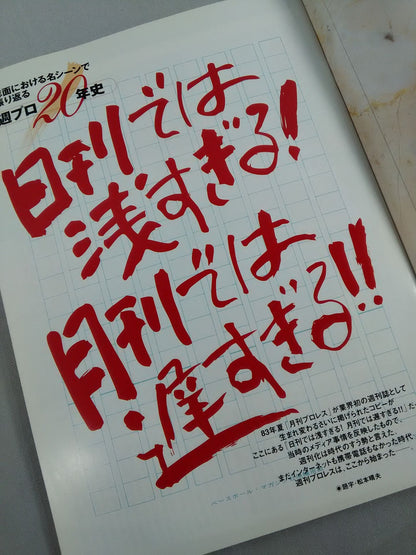 面における名シーンで
り返る
週プロ20年史
日刊では
浅すぎる!
月刊では
遅すぎる!!
83年夏「月刊プロレス」が業界初の週刊誌として
生まれ変わるさいに掲げられたコピーが
ここにある「日刊では浅すぎる!月刊では遅すぎる!!」だっ
当時のメディア事情を反映したもので、
週刊化は時代のすう勢と言えた。
まだインターネットも携帯電話もなかった時代
週刊プロレスは、ここから始まった──。
ベースボール・マガジ
※題字・松本晴夫